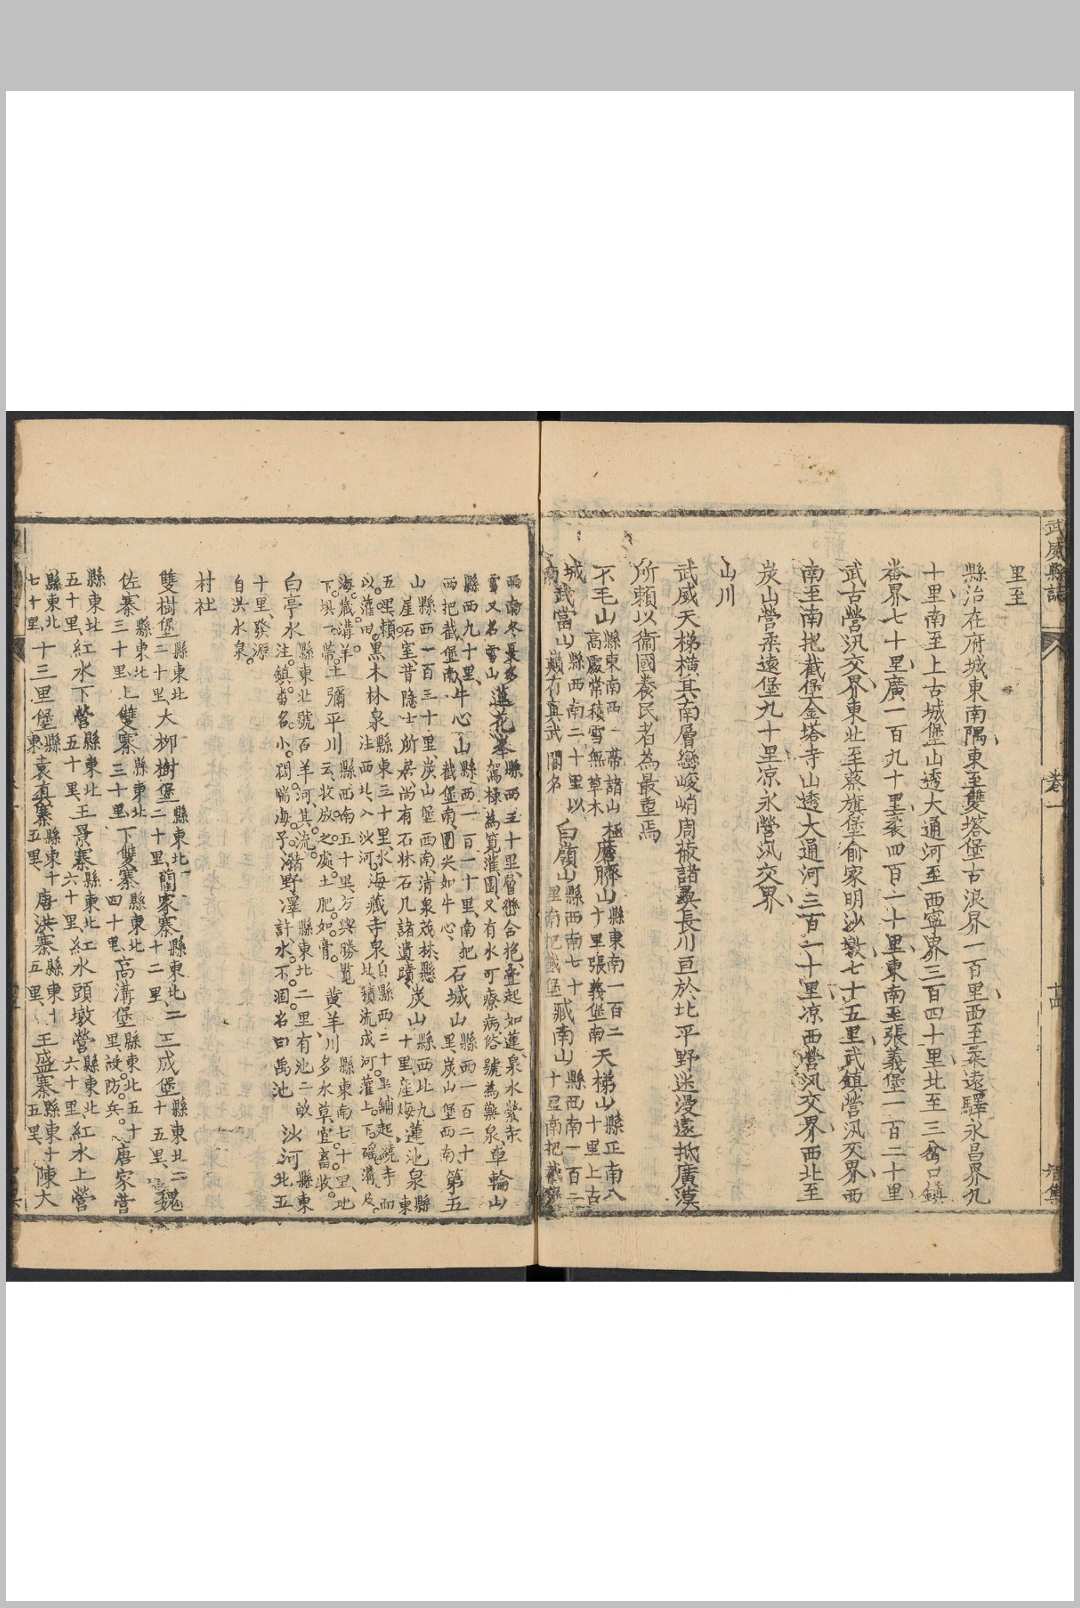 武威縣誌 卷一 十四 智集
里至
縣治在府城東南隅東至雙塔堡古浪界一百里西至柔遠驛永昌界九
十里南至上古城堡山透大通河至西寧界三百四十里北至三岔口鎮
番界七十里廣一百九十里袤四百一十里東南至張義堡一百二十里
武古營汛交界東北至蔡旗堡俞家明沙墩七十五里武鎮營汛交界西
南至南把截堡金塔寺山透大通河三百一十里凉西營汛交界西北至
炭山營柔遠堡九十里凉永營汛交界
山川
武威天梯橫其南層巒峻峭周遮諸羌長川亘於北平野迷漫遠抵廣漠
所賴以衞國養民者為最重焉
不毛山縣東南西一帶諸山極高處常積雪無草木麆臍山縣東南一百二十里張義堡南天梯山縣正南八十里上古
城武當山縣西南二十里以巔有真武閣名白嶺山縣西南七十里南把截堡藏南山縣西南一百二十里南把截寨
南雪又名雪山蓮花峯縣西三十里層巒合抱壘起如蓮泉水瑩赤駕棟為筧灌園又有水可療病俗號為藥泉車輪山
縣西九十里南把截堡南牛心山縣西一百一十里南把截堡南圍尖如牛心石城山縣西一百二十里炭山堡西南第五
山縣西一百三十里炭山堡西南清泉茂林懸崖石室昔隱士所居尚有石牀石几諸遺蹟炭山縣西北九十里産煤蓮池泉縣東
五里頼以灌田黑木林泉縣東三十里水注西北入沙河海藏寺泉縣西二十里繞寺而北積流成河灌上下瑤溝及
海藏溝羊下垻一帶土彌平川縣西南五十里方輿勝覽云牧放之處土肥如膏黃羊川縣東南七十里地多水草宜畜牧
白亭水縣東北號百羊河其流注鎮畨名小闊端海子潴野澤縣東北二里有池二畝許水不涸名曰禹池沙河縣東北五
十里發源自洪水泉
村社
雙樹堡縣東北二十里大柳樹堡縣東北二十里藺家寨縣東北二十二里王成堡縣東北二十五里魏
佐寨縣東北三十里上雙寨縣東北三十里下雙寨縣東北四十里高溝堡縣東北五十里故防兵唐家營
縣東北五十里紅水下營縣東北五十里王景寨縣東北六十里紅水頭墩營縣東北六十里紅水上營
縣東北七十里十三里堡縣東袁真寨縣東十五里唐洪寨縣東十五里王盛寨縣東十五里陳大